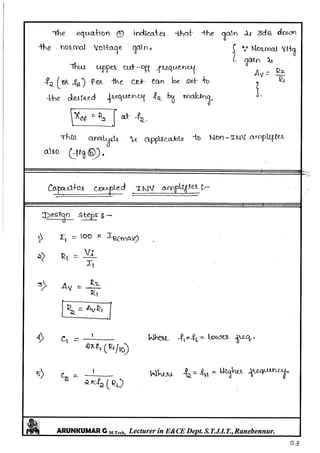 The equation ① indicates that the gain is 3dB down
the normal voltage gain.
{ ∵ Normal Vltg
gain is
Av = R2/R1 }
Thus upper cut-off frequency
f2 (or fH) for the ckt can be set to
the desired frequency f2 by making,
Xcf = R2 at f2.
This analysis is applicable to Non-INV amplifier
also (fig ⑤).
Capacitor coupled INV amplifier :-
Design Steps :-
1) I1 = 100 × IB(max)
2) R1 = Vi/I1
3) Av = R2/R1
R2 = AvR1
4) C1 = 1/2πf1(R1/10) Where f1=fL = Lower freq.
5) C2 = 1/2πf2(RL) Where f2 = fH = Higher frequency
ARUNKUMAR G M.Tech, Lecturer in E&CE Dept. S.T.J.I.T., Ranebennur.